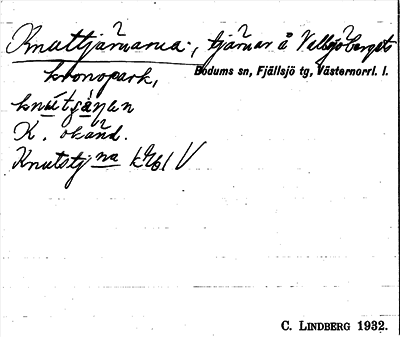 Knuttjärnarna, tjärnar å Vallsjöbergets
kronopark,
Bodums sn, Fjällsjö tg, Västernorrl. l.
knùtɟàɳen
K. okänd.
Knutstj na
C. LINDBERG 1932.